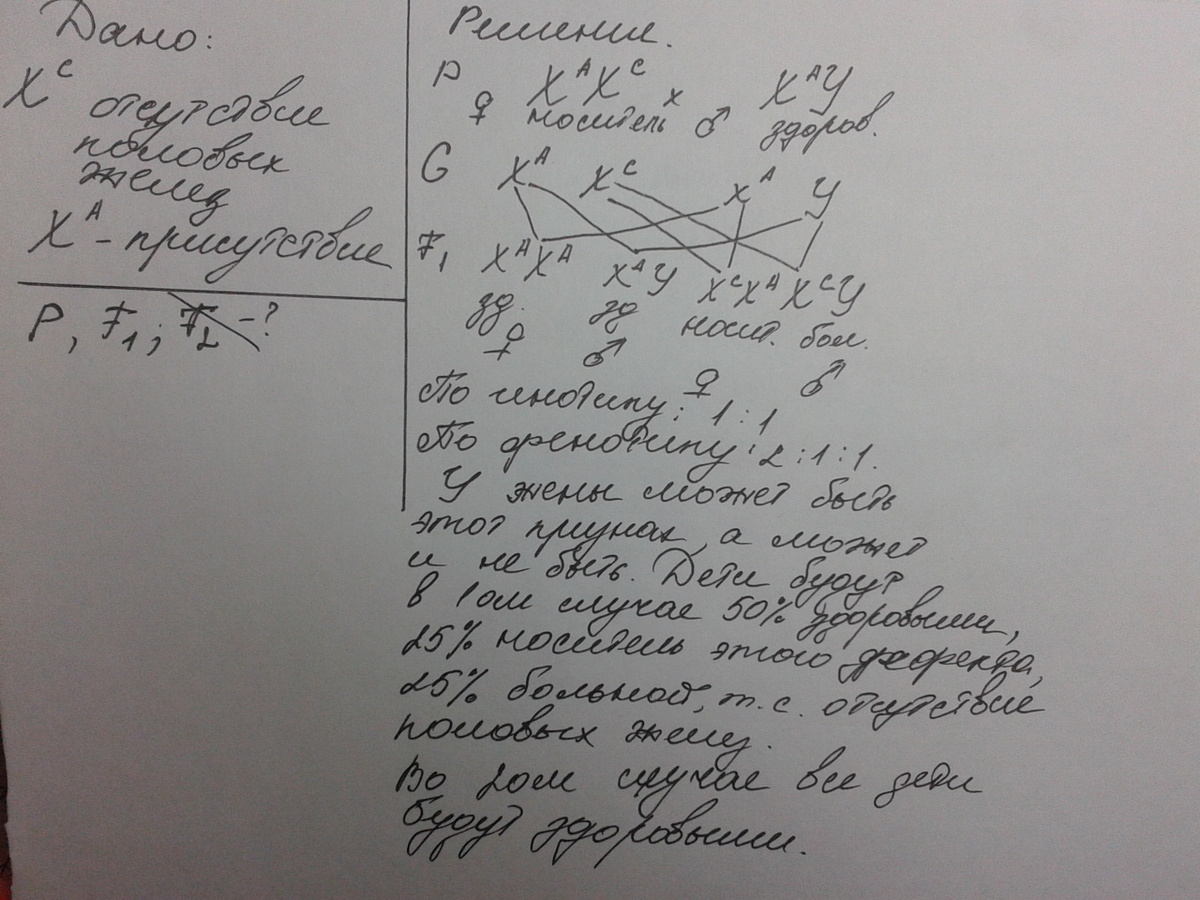 Дано:
X^C отсутствие
половых
желез
X^A - присутствие
P, F₁; F₂ -?
Решение.
P ♀ X^A X^C x ♂ X^A Y
носитель здоров.
G X^A X^C X^A Y
F₁ X^A X^A X^A Y X^C X^A X^C Y
зд. зд носит. бол.
♀ ♂ ♀ ♂
По генотипу: 1:1
По фенотипу: 2:1:1.
У жены может быть
этот признак, а может
и не быть. Дети будут
в 1ом случае 50% здоровыми,
25% носитель этого дефекта,
25% больной, т.е. отсутствие
половых желез.
Во 2ом случае все дети
будут здоровыми.